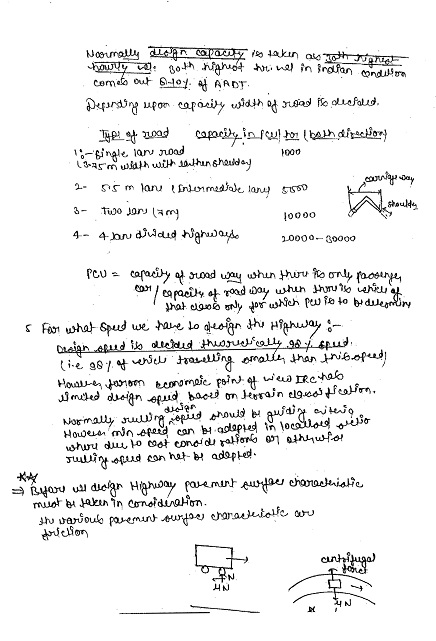 Normally design capacity is taken as 30th highest
hourly vol. 30th highest hr. vol in Indian condition
comes out 8-10% of AADT.
Depending upon capacity width of road is decided.
Type of road capacity in PCU/hr (both direction)
1:- Single lane road 1000
(3.75 m width with earthen shoulder)
2- 5.5 m lane (Intermediate lane) 5000
3- Two lane (7m) 10000
4- 4 lane divided highways 20000-30000
carriage way
shoulder
PCU = capacity of road way when there is only passenger
car/capacity of road way when there is vehicle of
that class only for which PCU is to be determine
5 For what speed we have to design the Highway :-
Design speed is decided theoretically 98% speed.
(i.e 98% of vehicle travelling smaller than this speed)
However from economic point of view IRC has
limited design speed based on terrain classification.
Normally rulling design speed should be guiding criteria
However min speed can be adopted in localised
where due to cost consideration or otherwise
rulling speed can not be adopted.
⇒ Before we design Highway pavement surface characteristic
must be taken in consideration.
The various pavement surface characteristic are
friction
centrifugal
force
μN
μN